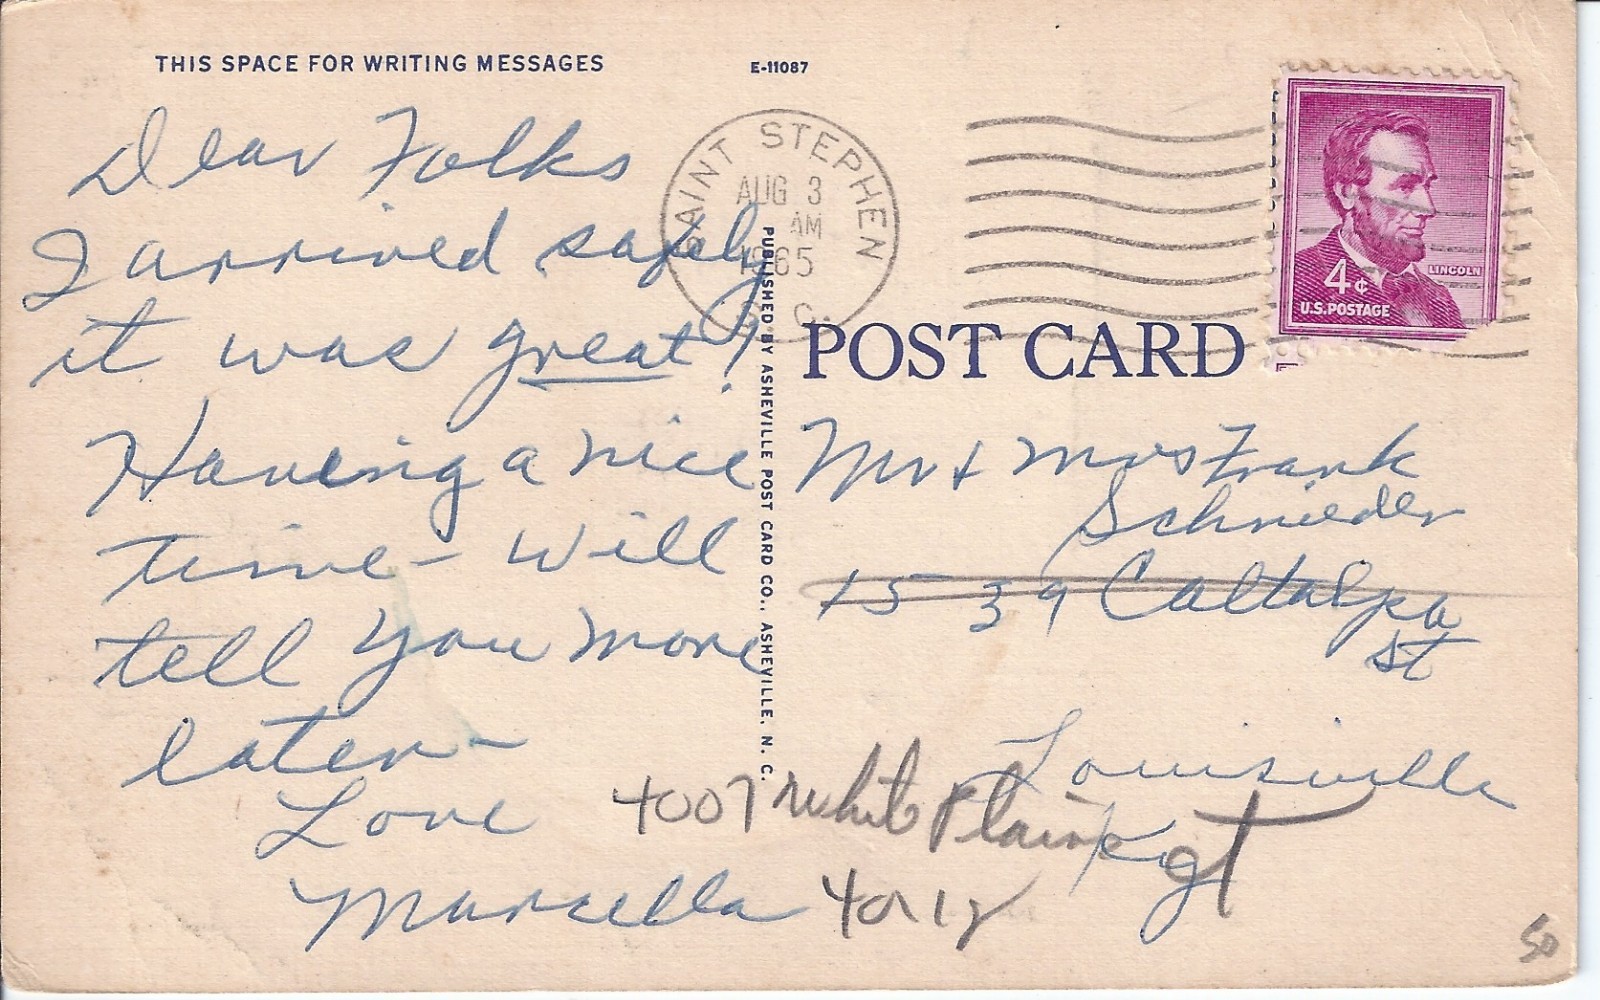 THIS SPACE FOR WRITING MESSAGES
E-11087
Dear Folks
I arrived safely
it was great!
Having a nice
time - will
tell you more
later -
Love
Marcella
SAINT STEPHEN
AUG 3
AM
1965
S. C.
PUBLISHED BY ASHEVILLE POST CARD CO., ASHEVILLE, N. C.
4¢
LINCOLN
U.S. POSTAGE
POST CARD
Mr + Mrs Frank
Schnieder
1539 Caltalpa
St
Louisville
Ky
4007 White Plain
40218
50